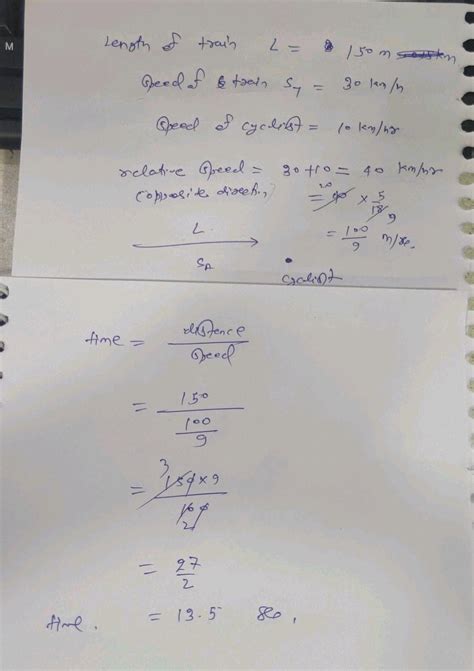 M
Length of train L = 150 m
Speed of train S_T = 30 km/h
Speed of cyclist = 10 km/hr
relative speed = 30+10 = 40 km/hr
(opposite direction) = 40 × 5/18
20 9
= 100/9 m/se.
L
S_R
cyclist
time = distance/speed
= 150/(100/9)
3
= 150×9/100
2
= 27/2
time. = 13.5 Se.